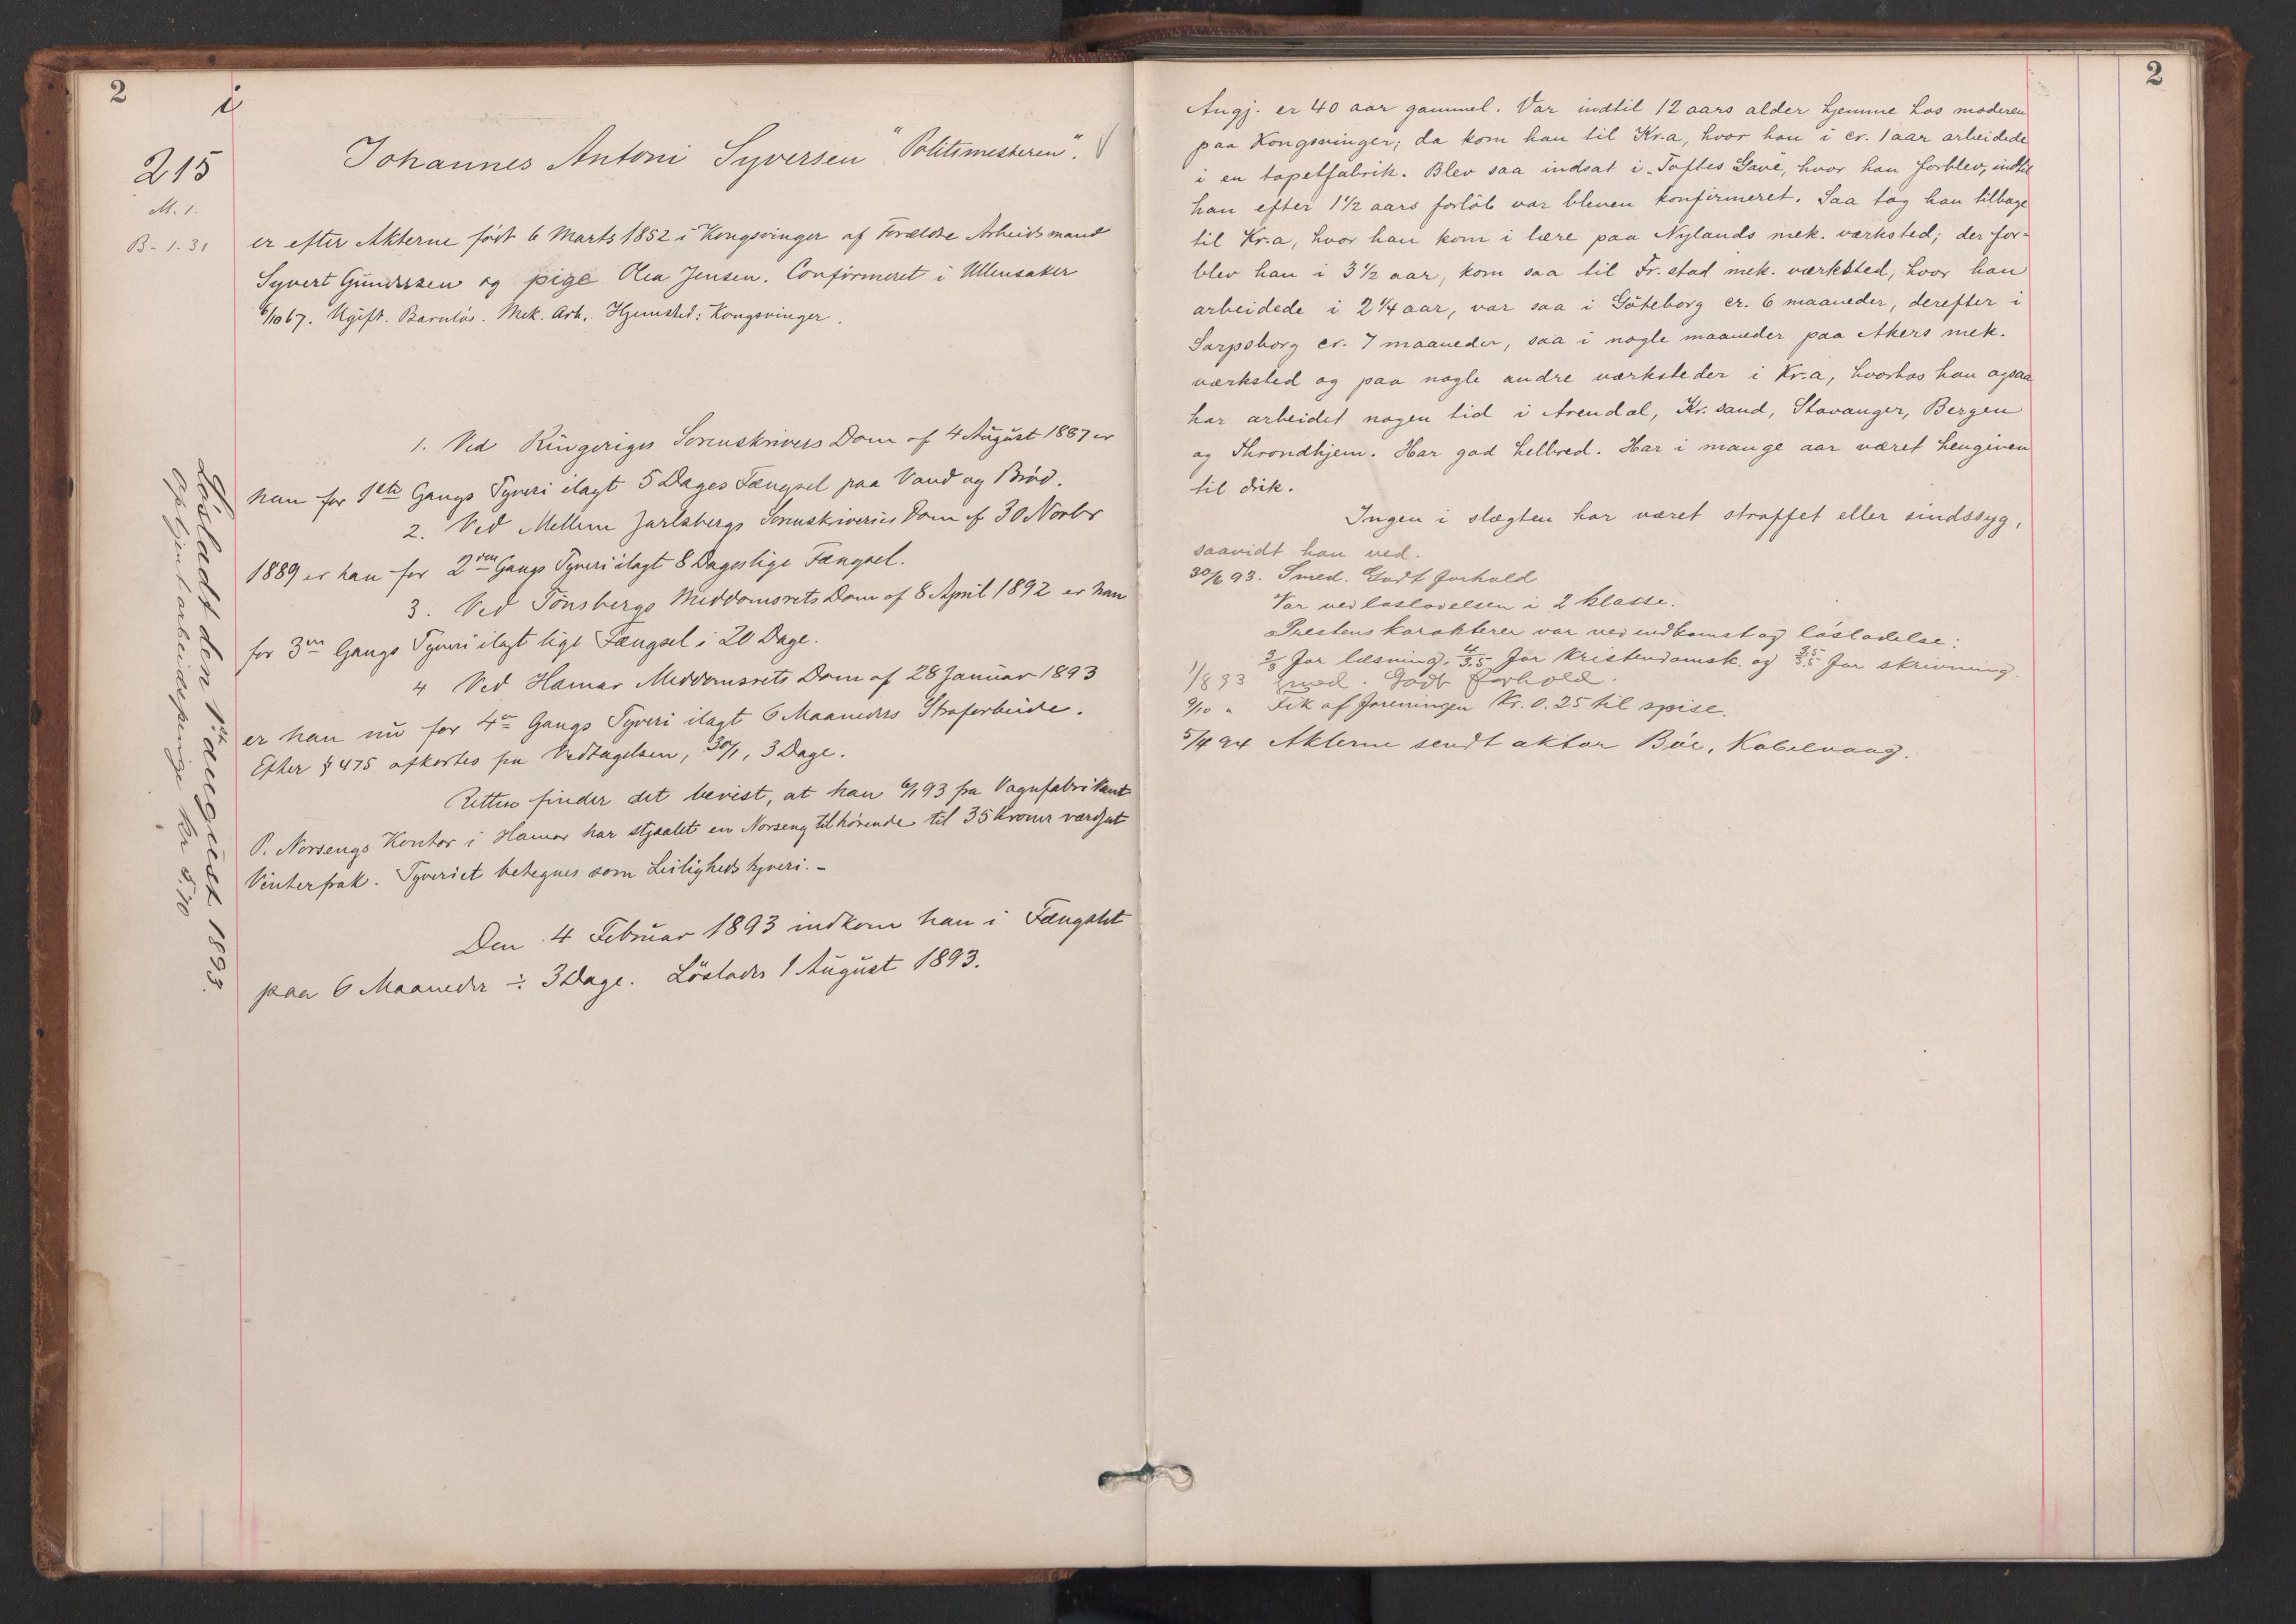 2
i
215
M. 1.
B - 1 - 31
Johannes Antoni Syversen "Politimesteren".
er efter Akterne født 6 Marts 1852 i Kongsvinger af Forældre Arbeidsmand
Syvert Gundersen og pige Olea Jensen. Confirmeret i Ullensaker
6/10 67. Ugift. Barnløs. Mek. Arb. Hjemsted: Kongsvinger.
1. Ved Ringeriges Sorenskrivers Dom af 4 August 1887 er
han for 1ste Gangs Tyveri ilagt 5 Dages Fængsel paa Vand og Brød.
2. Ved Mellem Jarlsbergs Sorenskriveries Dom af 30 Novbr
1889 er han for 2den Gangs Tyveri ilagt 8 Dages lige Fængsel.
3. Ved Tönsbergs Meddomsrets Dom af 8 April 1892 er han
for 3die Gangs Tyveri ilagt lige Fængsel i 20 Dage.
4 Ved Hamar Meddomsrets Dom af 28 Januar 1893
er han nu for 4de Gangs Tyveri ilagt 6 Maaneders Strafarbeide.
Efter § 475 afkortes fra Vedtagelsen, 30/1, 3 Dage.
Retten finder det bevist, at han 6/1 93 fra Vognfabrikant
P. Norsengs Kontor i Hamar har stjaalet en Norseng tilhørende til 35 Kroner værdsat
Vinterfrak. Tyveriet betegnes som Leilighedstyveri. -
Den 4 Februar 1893 indkom han i Fængslet
paa 6 Maaneder ÷ 3 Dage. Löslades 1 August 1893.
Løsladt den 1ste august 1893.
Optjent arbeidspenge kr 5,70
2
Angj. er 40 aar gammel. Var indtil 12 aars alder hjemme hos moderen
paa Kongsvinger; da kom han til Kr.a, hvor han i cr. 1 aar arbeidede
i en tapetfabrik. Blev saa indsat i Toftes Gave, hvor han forblev, indtil
han efter 1 1/2 aars forløb var bleven konfirmeret. Saa tog han tilbage
til Kr.a, hvor han kom i lære paa Nylands mek. værksted; der for-
blev han i 3 1/2 aar, kom saa til Fr.stad mek. værksted, hvor han
arbeidede i 2 1/4 aar, var saa i Göteborg cr. 6 maaneder, derefter i
Sarpsborg cr. 7 maaneder, saa i nogle maaneder paa Akers mek.
værksted og paa nogle andre værksteder i Kr.a, hvorhos han ogsaa
har arbeidet nogen tid i Arendal, Kr.sand, Stavanger, Bergen
og Throndhjem. Har god helbred. Har i mange aar været hengiven
til drik.
Ingen i slægten har været straffet eller sindssyg,
saavidt han ved.
30/6 93. Smed. Godt forhold
Var ved løsladelsen i 2 klasse.
Prestens karakterer var ved indkomst og løsladelse:
3/3 for læsning, 4/3.5 for kristendomsk. og 3.5/3.5 for skrivning.
1/8 93 Smed. Godt forhold.
9/10 " Fik af foreningen Kr. 0.25 til spise.
5/4 94 Akterne sendt aktor Bøe, Kabelvaag.